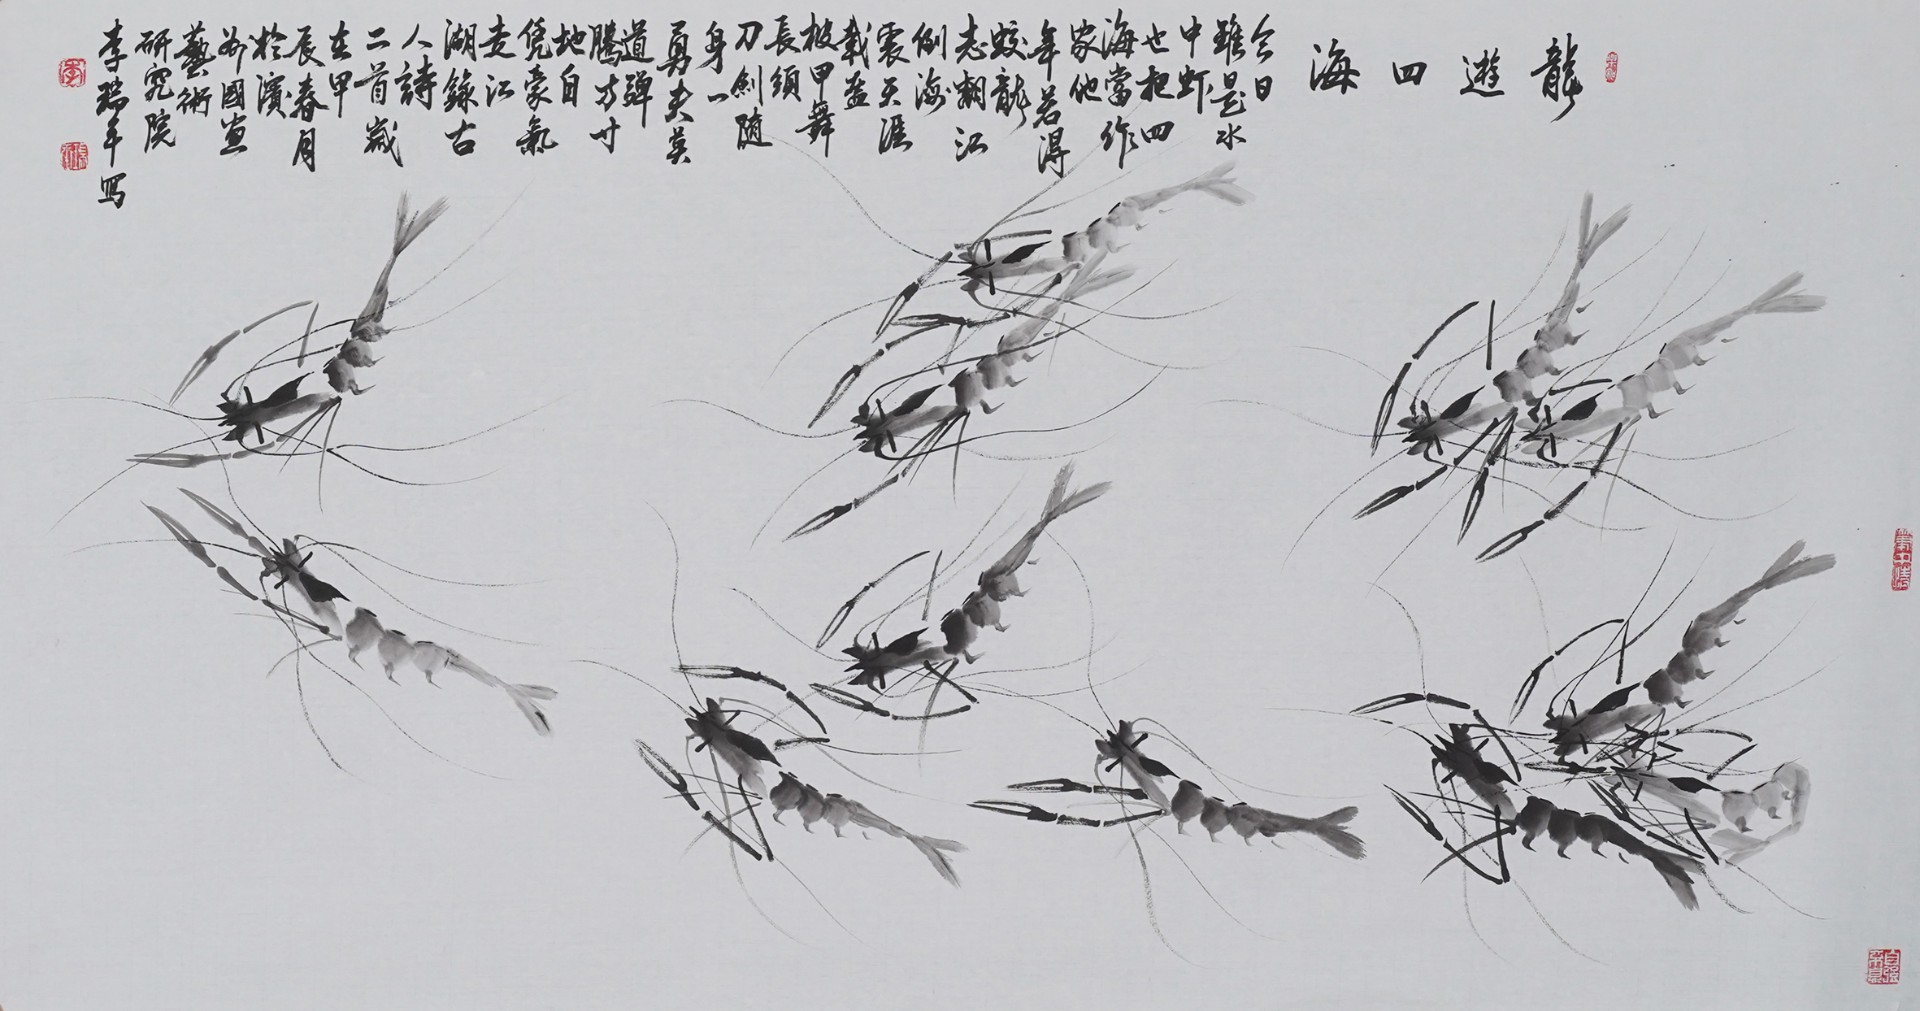 龍遊四海
今日
雖是水
中虾
也把四
海當作
家他
年若得
蛟龍
志翻江
倒海
震天涯
載盔
披甲舞
長須
刀劍随
身一
勇夫莫
道彈
騰方寸
地自
凭豪氣
走江
湖錄古
人詩
二首歲
在甲
辰春月
於濱
州國畫
藝術
研究院
李瑞年寫